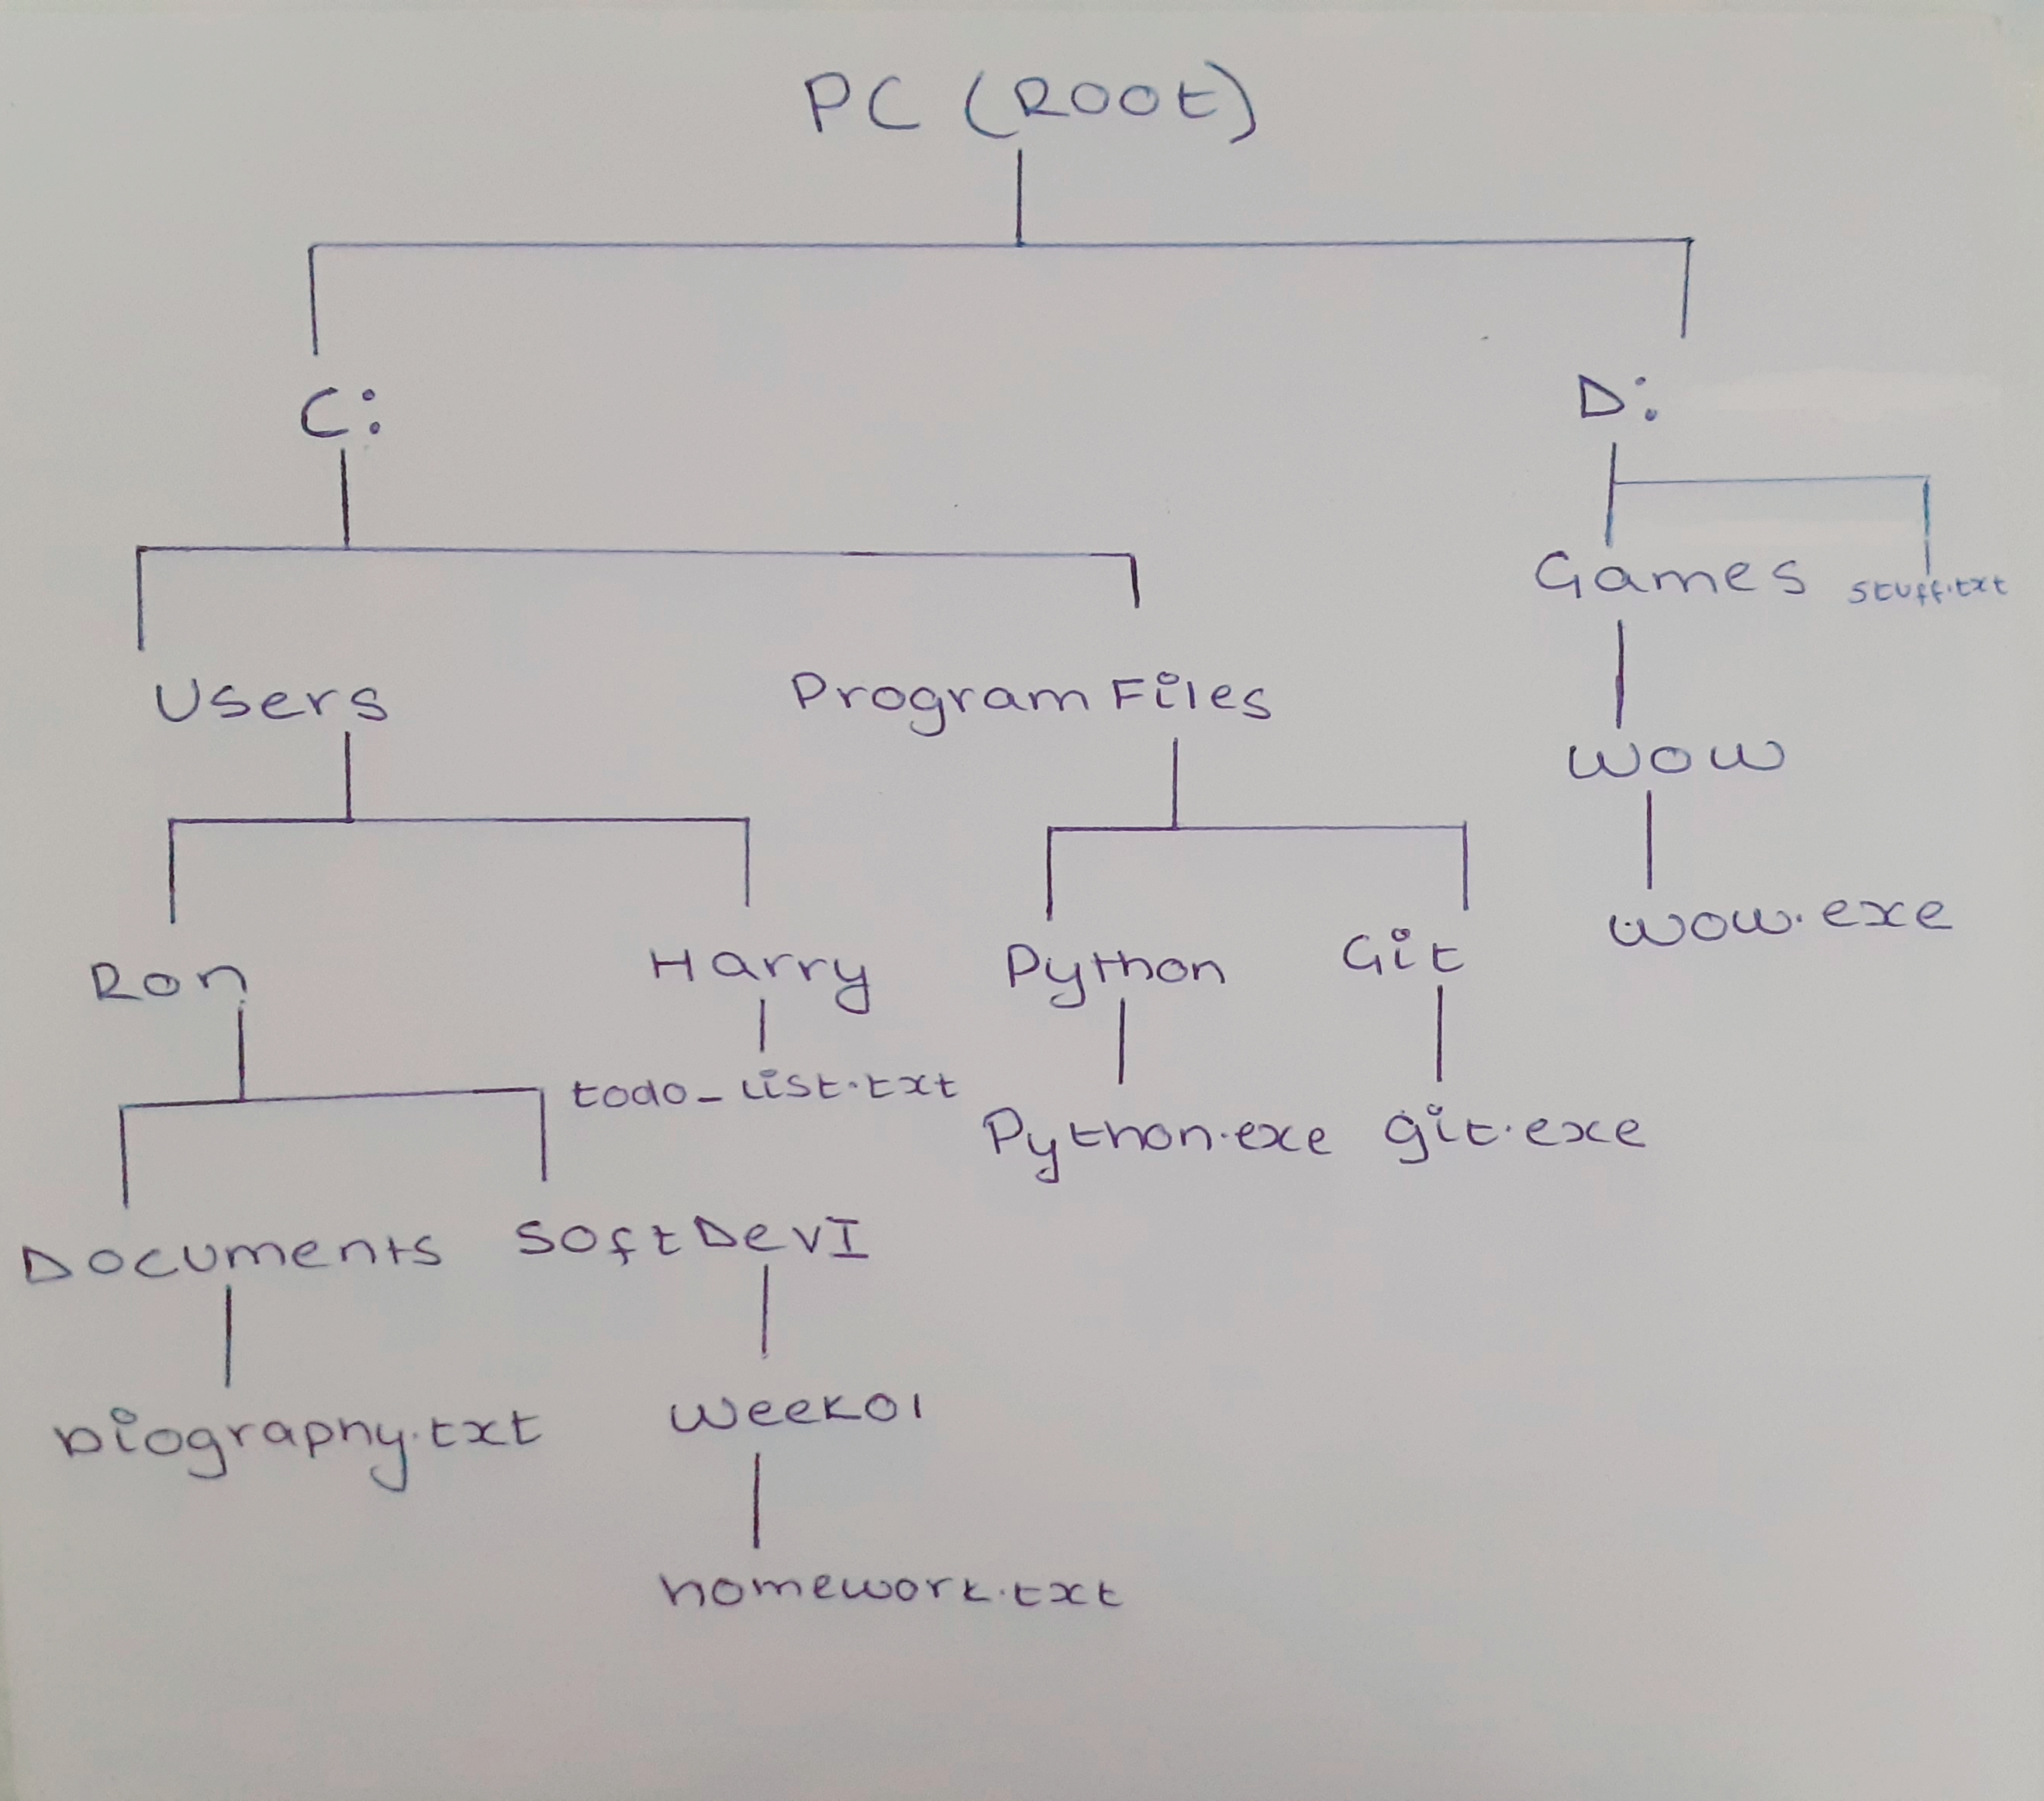 PC (Root)
C:
D:
Games stuff.txt
Users
Program Files
wow
wow.exe
Ron
Harry
Python
Git
todo_list.txt
Python.exe git.exe
Documents
SoftDevI
biography.txt
week01
homework.txt